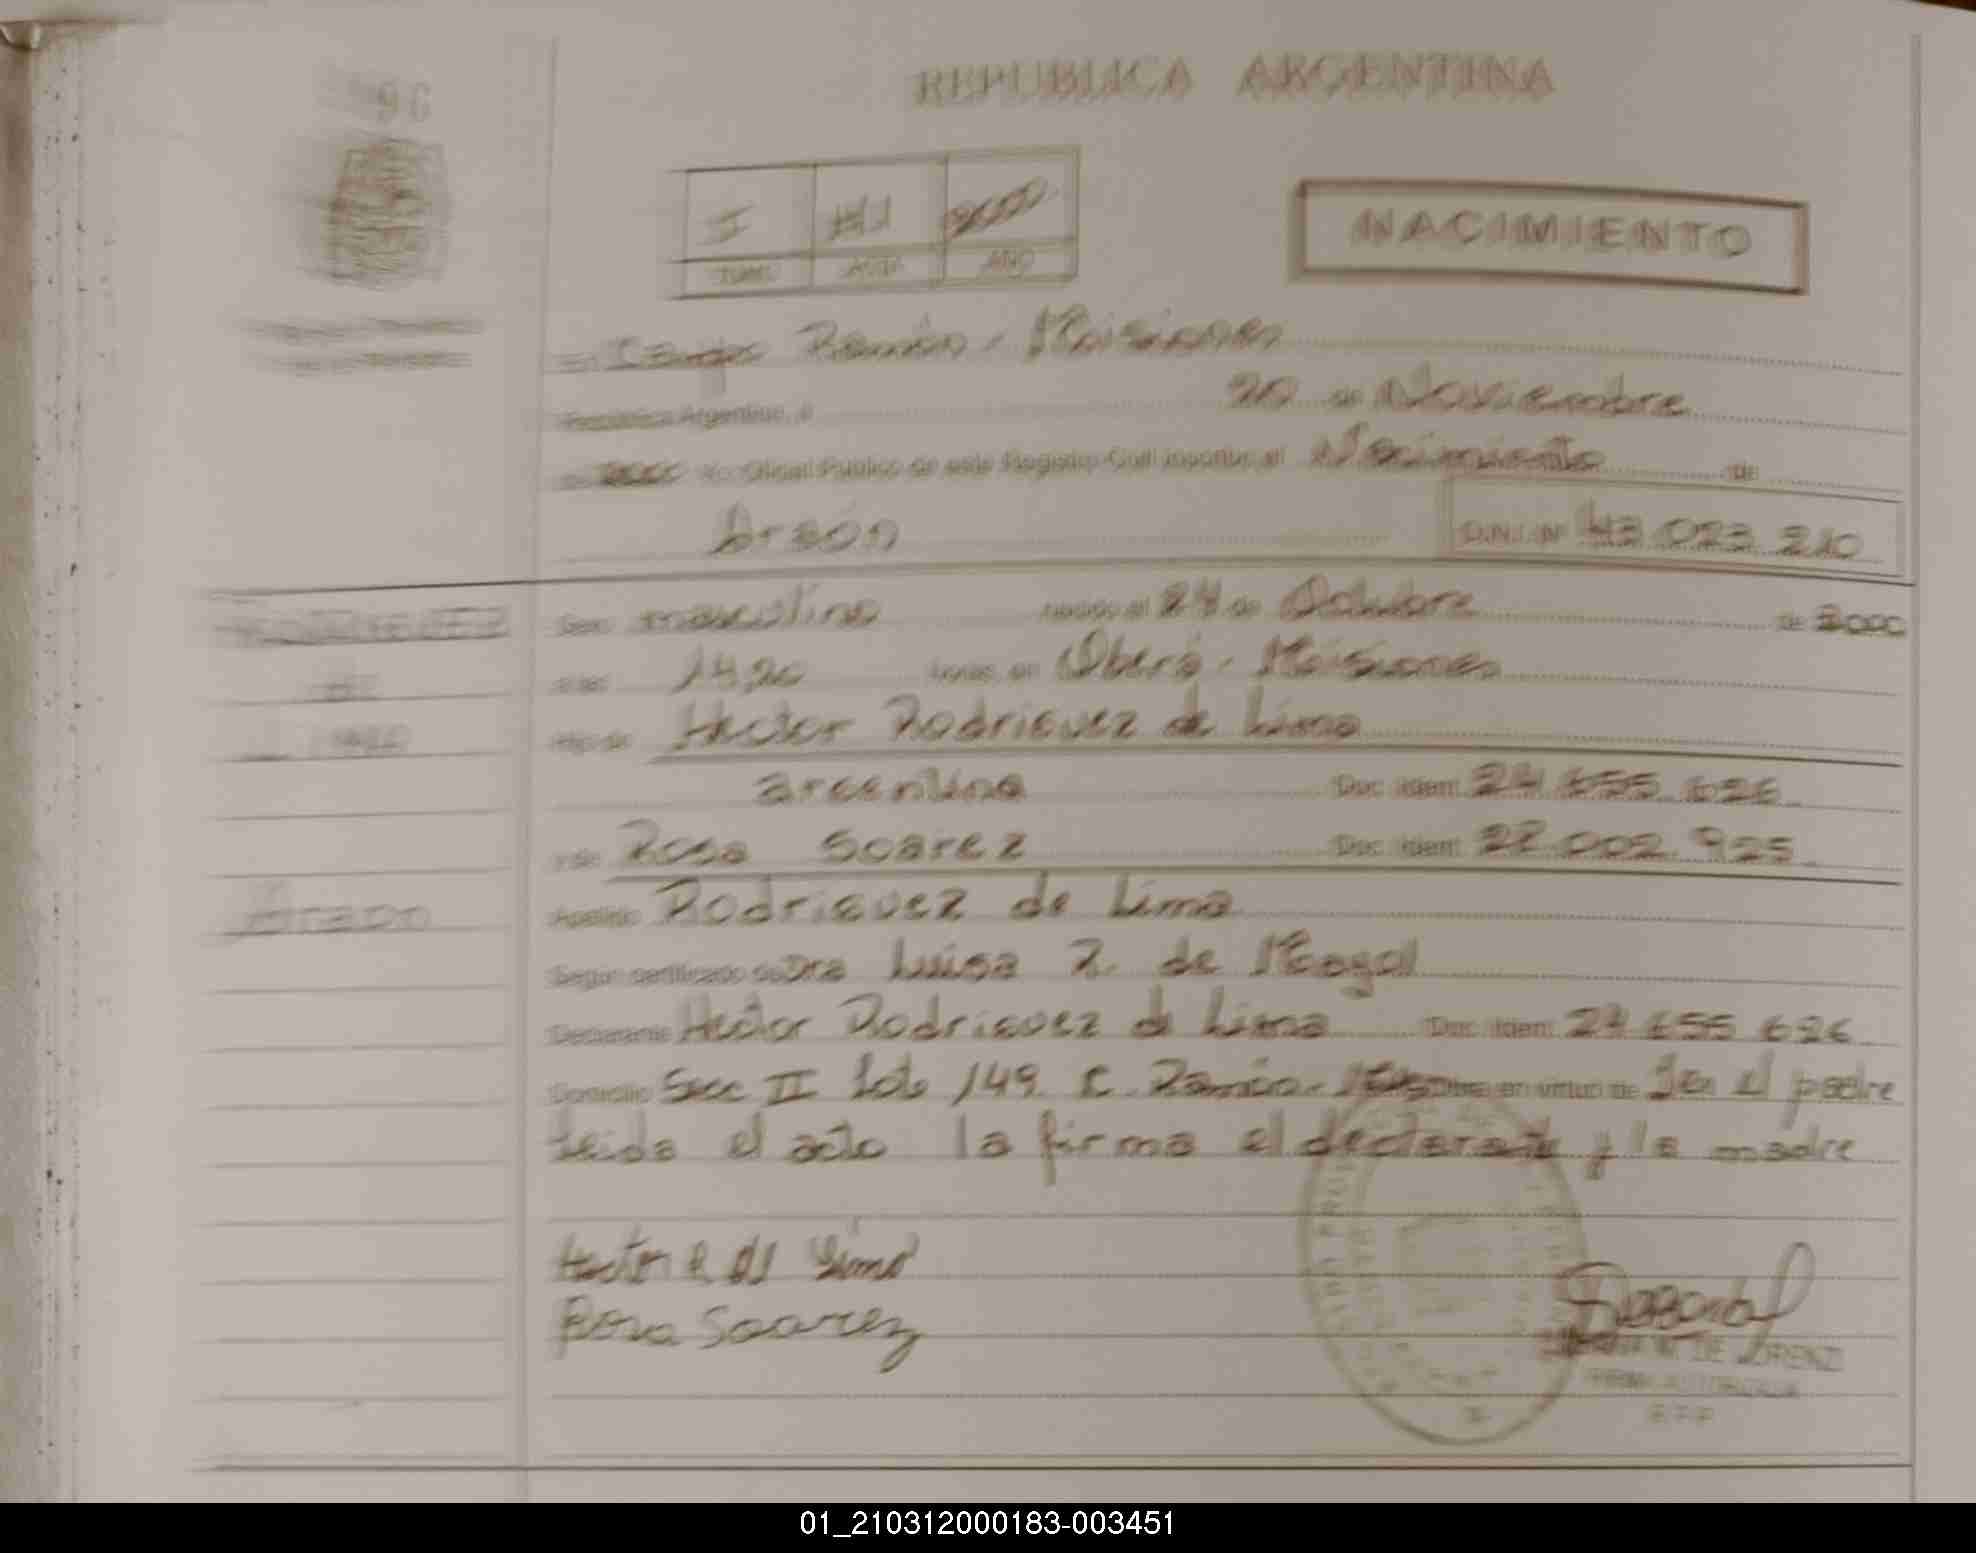 96
REPUBLICA ARGENTINA
I
TOMO ACTA AÑO
NACIMIENTO
En Campo Ramón - Misiones
República Argentina, a 20 de Noviembre
de Yo, Oficial Público de este Registro Civil inscribo el Nacimiento de
Araón
D.N.I. Nº 43.023.210
RODRIGUEZ
DE
LIMA
Araon
Sexo masculino nacido el 24 de Octubre de 2000
a las 14,20 horas, en Oberá - Misiones
Hijo de Hector Rodriguez de Lima
argentina Doc. Ident. 24.655.626
y de Rosa Soarez Doc. Ident.
Apellido Rodriguez de Lima
Según certificado de Dra Luisa Z. de
Declarante Hector Rodriguez de Lima Doc. Ident. 24.655.626
Domicilio Secc II Lote 149. C. Ramón - Obra en virtud de Ser el padre
Leida el acta la firma el declarante y la madre
Hector R de Lima
Rosa Soarez
DE LORENZI
FIRMA AUTORIZADA
01_210312000183-003451